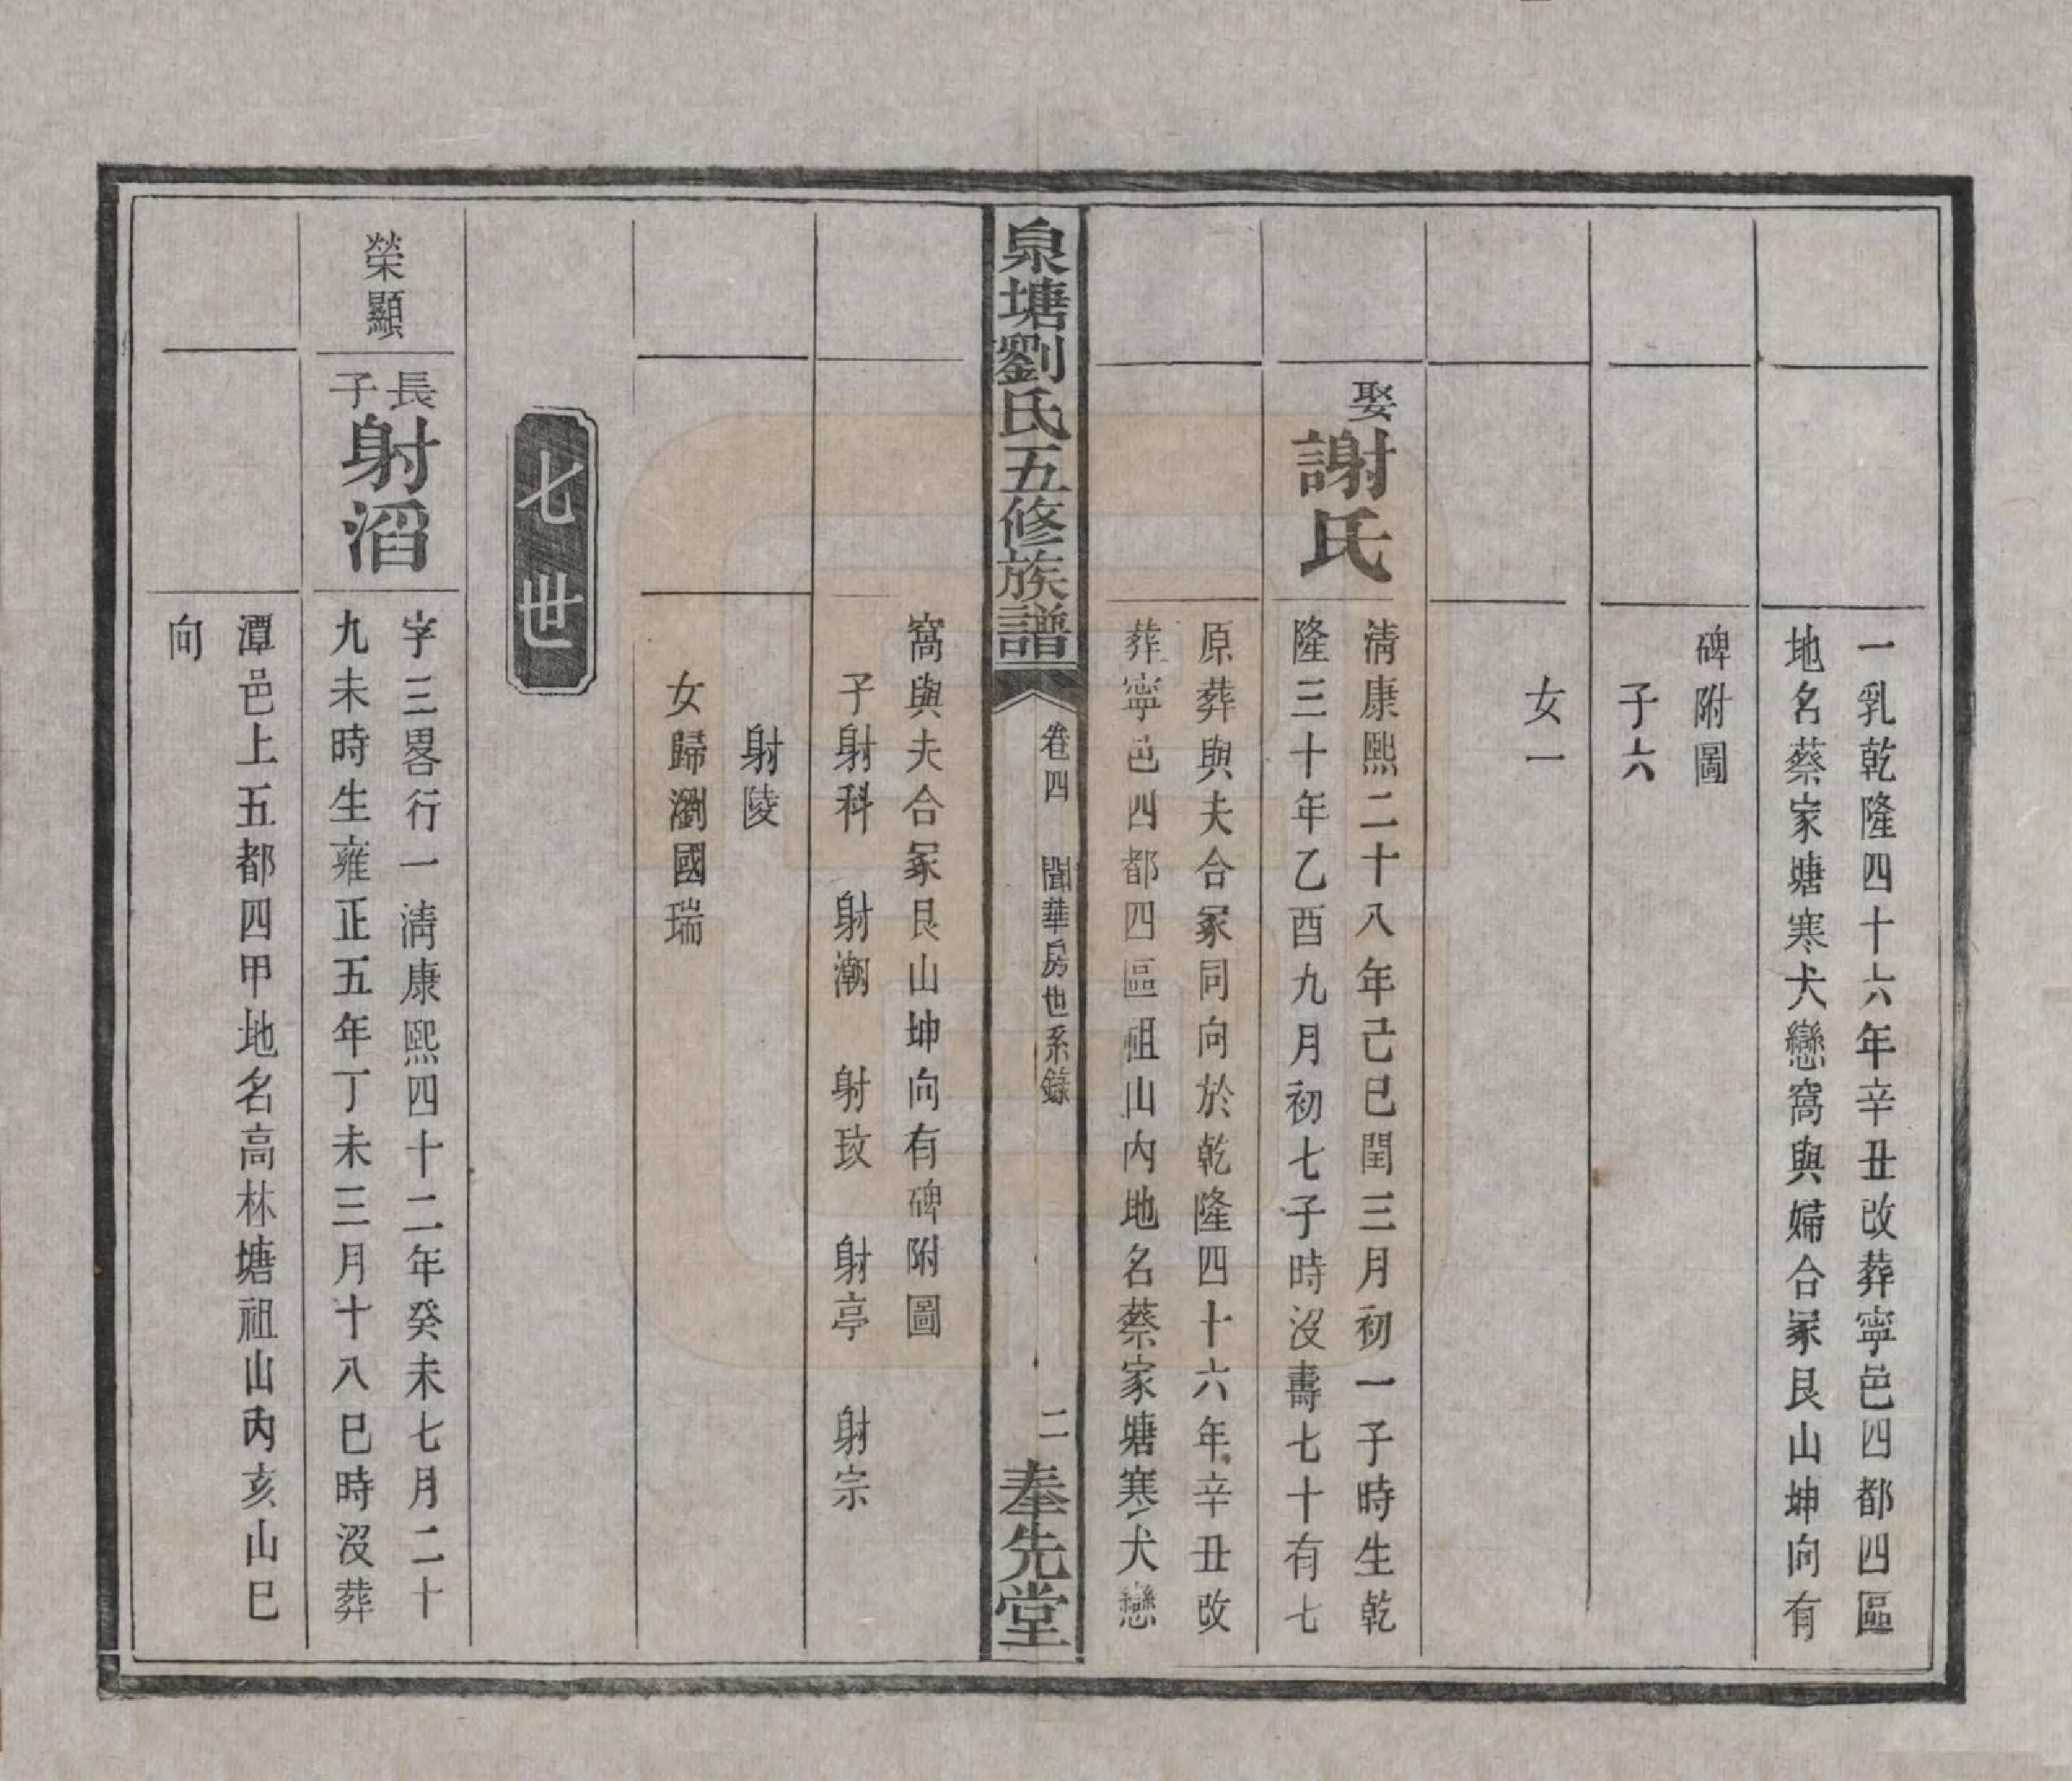 一乳乾隆四十六年辛丑改葬寧邑四都四區
地名蔡家塘寒犬戀窩與婦合冢艮山坤向有
碑附圖
子六
女一
娶
謝氏
清康熙二十八年己巳閏三月初一子時生乾
隆三十年乙酉九月初七子時沒壽七十有七
原葬與夫合冢同向於乾隆四十六年辛丑改
葬寧邑四都四區祖山內地名蔡家塘寒犬戀
泉塘劉氏五修族譜
卷四 聞華房世系錄
二
奉先堂
窩與夫合冢艮山坤向有碑附圖
子射科 射潮 射玫 射亭 射宗
射陵
女歸瀏國瑞
七世
榮顯
長子
射滔
字三畧行一清康熙四十二年癸未七月二十
九未時生雍正五年丁未三月十八巳時沒葬
潭邑上五都四甲地名高林塘祖山內亥山巳
向